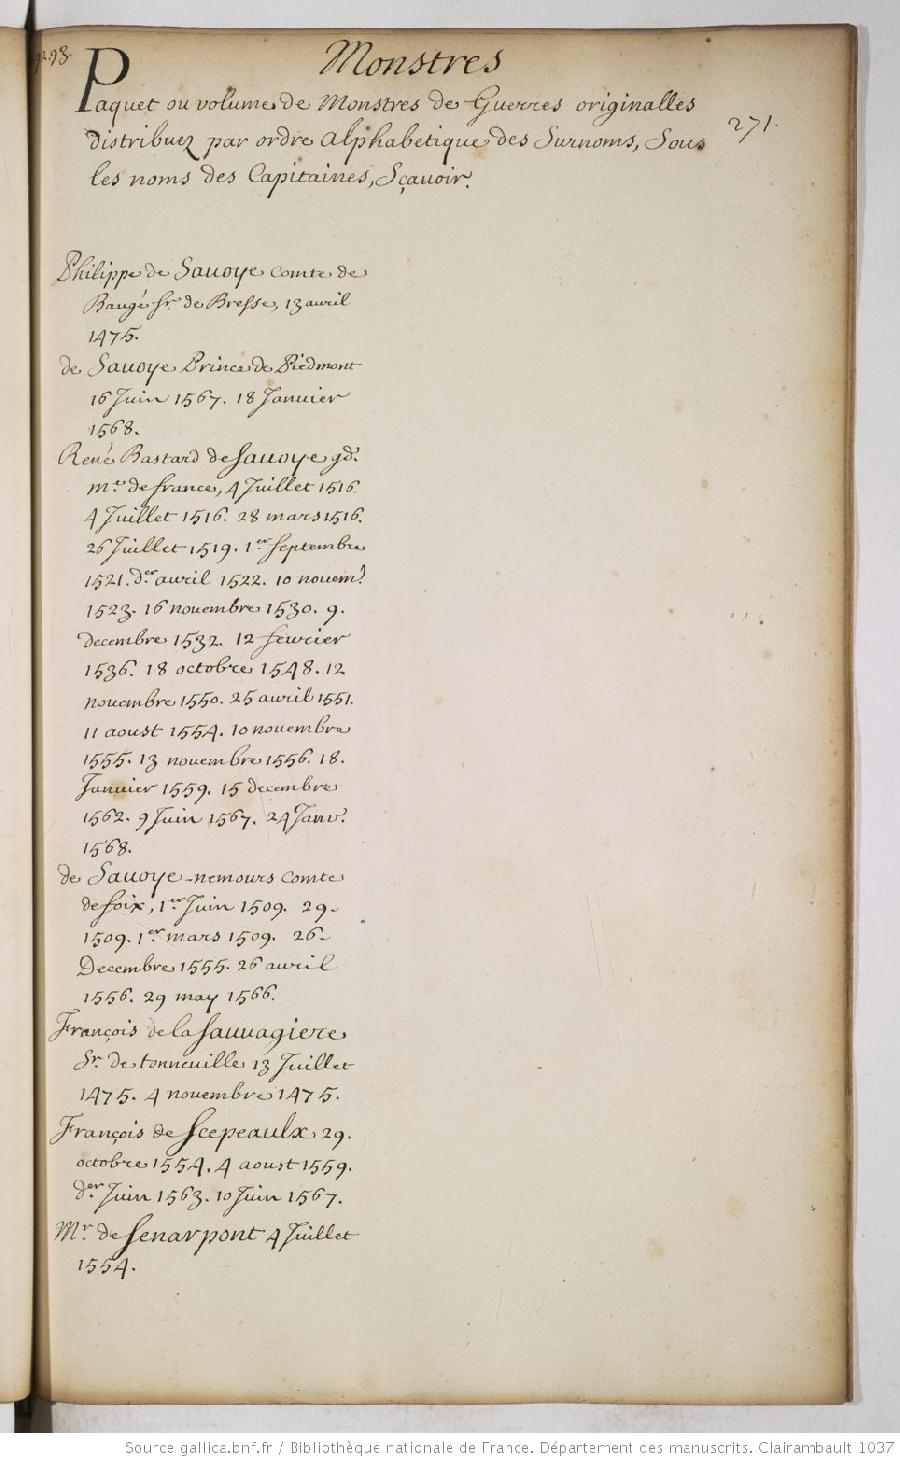 Monstres
Paquet ou volume de Monstres de Guerres originalles
distribuez par ordre Alphabetique des Surnoms, Sous
les noms des Capitaines, Sçavoir.
271.
Philippe de Sauoye comte de
Baugé Sr. de Bresse, 13 auril
1475.
de Sauoye Prince de Piedmont
16 Juin 1567. 18 Januier
1568.
René Bastard de Sauoye gd.
me. de france, 4 Juillet 1516
4 Juillet 1516. 28 mars 1516.
26 Juillet 1519. 1er septembre
1521. der auril 1522. 10 nouem.
1523. 16 nouembre 1530. 9.
decembre 1532. 12 feurier
1536. 18 octobre 1548. 12
nouembre 1550. 25 auril 1551.
11 aoust 1554. 10 nouembre
1555. 13 nouembre 1556. 18.
Januier 1559. 15 decembre
1562. 9 Juin 1567. 24 Janu.
1568.
de Sauoye-nemours comte
de foix, 1er Juin 1509. 29-
1509. 1er mars 1509. 26-
Decembre 1555. 26 auril
1556. 29 may 1566.
François de la Sauuagiere
Sr. de tonneuille 13 Juillet
1475. 4 nouembre 1475.
François de Scepeaulx 29.
octobre 1554. 4 aoust 1559.
der Juin 1563. 10 Juin 1567.
Mr. de Senarpont 4 Juillet
1554.
Source gallica.bnf.fr / Bibliothèque nationale de France. Département des manuscrits. Clairambault 1037